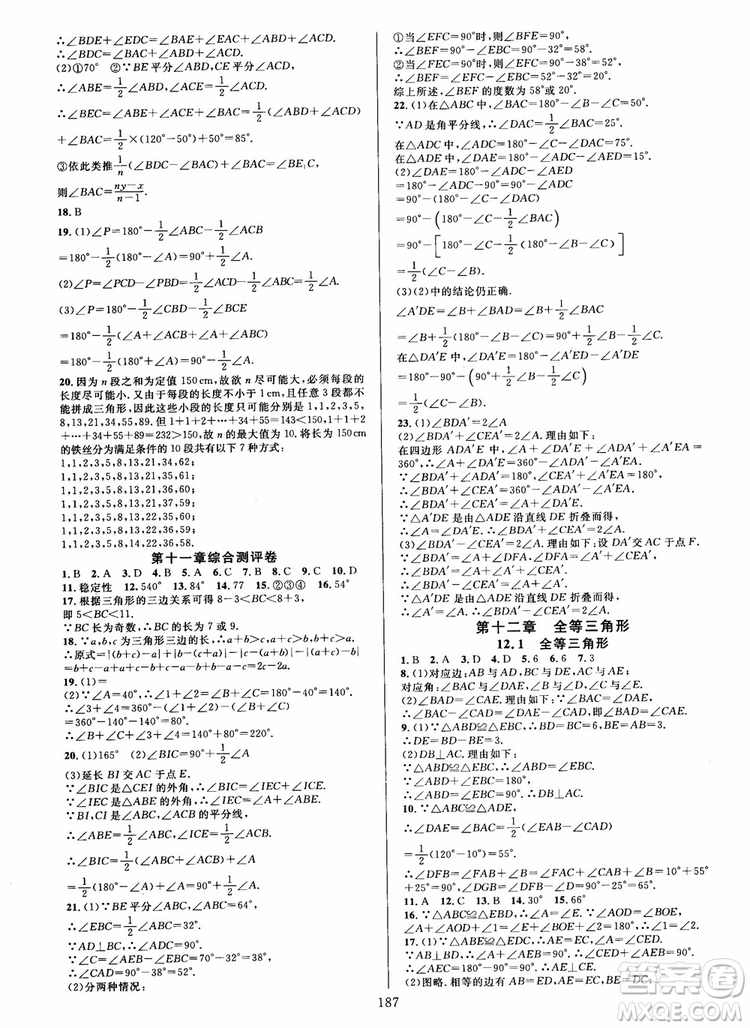 ∴∠BDE+∠EDC=∠BAE+∠ABD+∠EAC+∠ACD.
∴∠BDC=∠BAC+∠ABD+∠ACD.
(2)①70° ②∵BE平分∠ABD,CE平分∠ACD,
∴∠ABE=1/2∠ABD,∠ACE=1/2∠ACD.
∴∠BEC=∠ABE+∠ACE+∠BAC=1/2(∠BDC-∠BAC)
+∠BAC=1/2×(120°-50°)+50°=85°.
③依此类推1/n(∠BDC-∠BAC)+∠BAC=∠BE₁C,
则∠BAC=(ny-x)/(n-1).
18.B
19.(1)∠P=180°-1/2∠ABC-1/2∠ACB
=180°-1/2(180°-∠A)=90°+1/2∠A.
(2)∠P=∠PCD-∠PBD=1/2(∠ACD-∠ABC)=1/2∠A.
(3)∠P=180°-1/2∠CBD-1/2∠BCE
=180°-1/2(∠A+∠ACB+∠A+∠ABC)
=180°-1/2(180°+∠A)=90°-1/2∠A.
20.因为n段之和为定值150cm,故欲n尽可能大,必须每段的
长度尽可能小.又由于每段的长度不小于1cm,且任意3段都不
能拼成三角形,因此这些小段的长度只可能分别是1,1,2,3,5,
8,13,21,34,55,89,….但1+1+2+…+34+55=143<150,1+1+2
+…+34+55+89=232>150,故n的最大值为10.将长为150cm
的铁丝分为满足条件的10段共有以下7种方式:
1,1,2,3,5,8,13,21,34,62;
1,1,2,3,5,8,13,21,35,61;
1,1,2,3,5,8,13,21,36,60;
1,1,2,3,5,8,13,21,37,59;
1,1,2,3,5,8,13,22,35,60;
1,1,2,3,5,8,13,22,36,59;
1,1,2,3,5,8,14,22,36,58.
第十一章综合测评卷
1.B 2.A 3.D 4.B 5.A 6.B 7.A 8.C 9.C 10.D
11.稳定性 12.540° 13.84° 14.77° 15.②③④ 16.54°
17.根据三角形的三边关系可得8-3<BC<8+3,
即5<BC<11.
∵BC长为奇数,∴BC的长为7或9.
18.∵a,b,c为三角形三边的长,∴a+b>c,a+c>b,b+c>a.
∴原式=|(b+c)-a|+|b-(c+a)|+|c-(a+b)|=
b+c-a+a+c-b+a+b-c=a+b+c.
19.(1)=
(2)∵∠A=40°,∴∠1+∠2=∠B+∠C=140°.
∴∠3+∠4=360°-(∠B+∠C+∠1+∠2)=
360°-140°-140°=80°.
20.(1)165° (2)∠BIC=90°+1/2∠A
(3)延长BI交AC于点E.
∵∠BIC是△CEI的外角,∴∠BIC=∠IEC+∠ACI.
∵∠IEC是△ABE的外角,∴∠IEC=∠A+∠ABE.
∵BI,CI是△ABC的平分线,
∴∠ABE=1/2∠ABC,∠ACI=1/2∠ACB.
∴∠BIC=∠A+1/2∠ABC+1/2∠ACB=∠A+
1/2(180°-∠A)=∠A+90°-1/2∠A=90°+1/2∠A.
21.(1)∵BE平分∠ABC,且∠ABC=64°,
∴∠EBC=1/2∠ABC=32°.
∵AD⊥BC,∴∠ADB=∠ADC=90°.
∴∠BAD=90°-64°=26°.
∵∠C=∠AEB-∠EBC=70°-32°=38°,
∴∠CAD=90°-38°=52°.
(2)分两种情况:
①当∠EFC=90°时,则∠BFE=90°.
∴∠BEF=90°-∠EBC=90°-32°=58°.
②当∠FEC=90°时,则∠EFC=90°-38°=52°.
∴∠BEF=∠EFC-∠EBC=52°-32°=20°.
综上所述,∠BEF的度数为58°或20°.
22.(1)在△ABC中,∠BAC=180°-∠B-∠C=50°.
∵AD是角平分线,∴∠BAD=∠CAD=1/2∠BAC=25°.
在△ADC中,∠ADC=180°-∠C-∠CAD=75°.
在△ADE中,∠DAE=180°-∠ADC-∠AED=15°.
(2)∠DAE=180°-∠ADC-∠AED
=180°-∠ADC-90°=90°-∠ADC
=90°-(180°-∠C-1/2∠BAC)
=90°-[180°-∠C-1/2(180°-∠B-∠C)]
=1/2(∠C-∠B).
(3)(2)中的结论仍正确.
∠A′DE=∠B+∠BAD=∠B+1/2∠BAC
=∠B+1/2(180°-∠B-∠C)=90°+1/2∠B-1/2∠C.
在△DA′E中,∠DA′E=180°-∠A′ED-∠A′DE
=180°-90°-(90°+1/2∠B-1/2∠C)
=1/2(∠C-∠B).
23.(1)∠BDA′=2∠A
(2)∠BDA′+∠CEA′=2∠A.理由如下:
在四边形ADA′E中,∠A+∠DA′E+∠ADA′+∠A′EA=
360°,∴∠A+∠DA′E=360°-∠ADA′-∠A′EA.
∵∠BDA′+∠ADA′=180°,∠CEA′+∠A′EA=180°,
∴∠BDA′+∠CEA′=360°-∠ADA′-∠A′EA.
∴∠BDA′+∠CEA′=∠A+∠DA′E.
∵△A′DE是由△ADE沿直线DE折叠而得,
∴∠A=∠DA′E.∴∠BDA′+∠CEA′=2∠A.
(3)∠BDA′-∠CEA′=2∠A.理由如下:设DA′交AC于点F.
∵∠BDA′=∠A+∠DFA,∠DFA=∠A′+∠CEA′,
∴∠BDA′=∠A+∠A′+∠CEA′.
∴∠BDA′-∠CEA′=∠A+∠A′.
∵△A′DE是由△ADE沿直线DE折叠而得,
∴∠A=∠A′.∴∠BDA′-∠CEA′=2∠A.
第十二章 全等三角形
12.1 全等三角形
1.B 2.A 3.A 4.D 5.6 6.6 7.3
8.(1)对应边:AB与AD,BC与DE,AC与AE;
对应角:∠BAC与∠DAE,∠B与∠D,∠C与∠E.
(2)∠BAD=∠CAE.理由如下:∵∠BAC=∠DAE,
∴∠BAC-∠CAD=∠DAE-∠CAD,即∠BAD=∠CAE.
9.(1)∵△ABD≌△EBC,∴BD=BC=5,BE=AB=2.
∴DE=BD-BE=3.
(2)DB⊥AC.理由如下:
∵△ABD≌△EBC,∴∠ABD=∠EBC.
又∵∠ABD+∠EBC=180°,∴∠EBC=90°.∴DB⊥AC.
10.∵△ABC≌△ADE,
∴∠DAE=∠BAC=1/2(∠EAB-∠CAD)
=1/2(120°-10°)=55°.
∴∠DFB=∠FAB+∠B=∠FAC+∠CAB+∠B=10°+55°
+25°=90°,∠DGB=∠DFB-∠D=90°-25°=65°.
11.A 12.C 13.C 14.30° 15.66°
16.∵△ABC≌△DEC,∴∠A=∠D.∵∠AOD=∠BOE,
∠A+∠AOF+∠AFO=∠D+∠DOC+∠ACD=180°,
17.(1)∵△ABE≌△ACD,∴AD=AE,AB=AC.
∵AB-AD=BD,AC-AE=EC,∴BD=CE.
(2)图略.相等的边有AB=AC,AD=AE,BE=DC,
187
答案圈